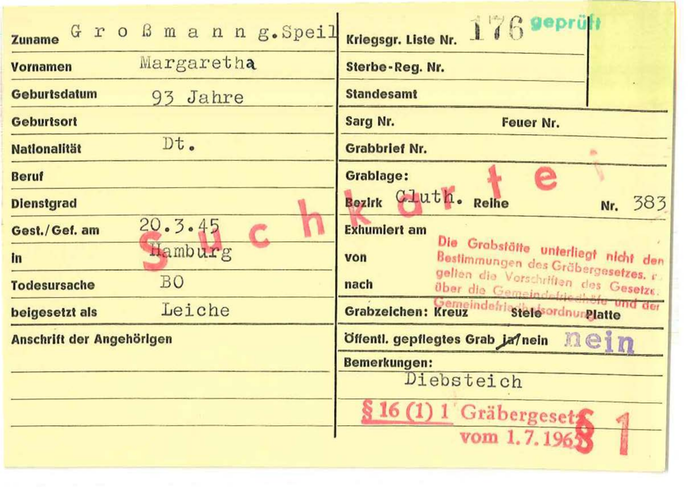 Zuname G r o ß m a n n g.Speil
Vornamen Margaretha
Geburtsdatum 93 Jahre
Geburtsort
Nationalität Dt.
Beruf
Dienstgrad
Gest./Gef. am 20.3.45
in Hamburg
Todesursache BO
beigesetzt als Leiche
Anschrift der Angehörigen
Kriegsgr. Liste Nr. 176 geprüft
Sterbe-Reg. Nr.
Standesamt
Sarg Nr. Feuer Nr.
Grabbrief Nr.
Grablage:
Bezirk Cluth. Reihe Nr. 383
Exhumiert am
von
nach
Grabzeichen: Kreuz Stele Platte
Öffentl. gepflegtes Grab ja/nein nein
Bemerkungen:
Diebsteich
Suchkartei
Die Grabstätte unterliegt nicht den
Bestimmungen des Gräbergesetzes.
gelten die Vorschriften des Gesetze
über die Gemeindefriedhöfe und der
Gemeindefriedhofsordnung
§ 16 (1) 1 Gräbergesetz
vom 1.7.196
§ 1